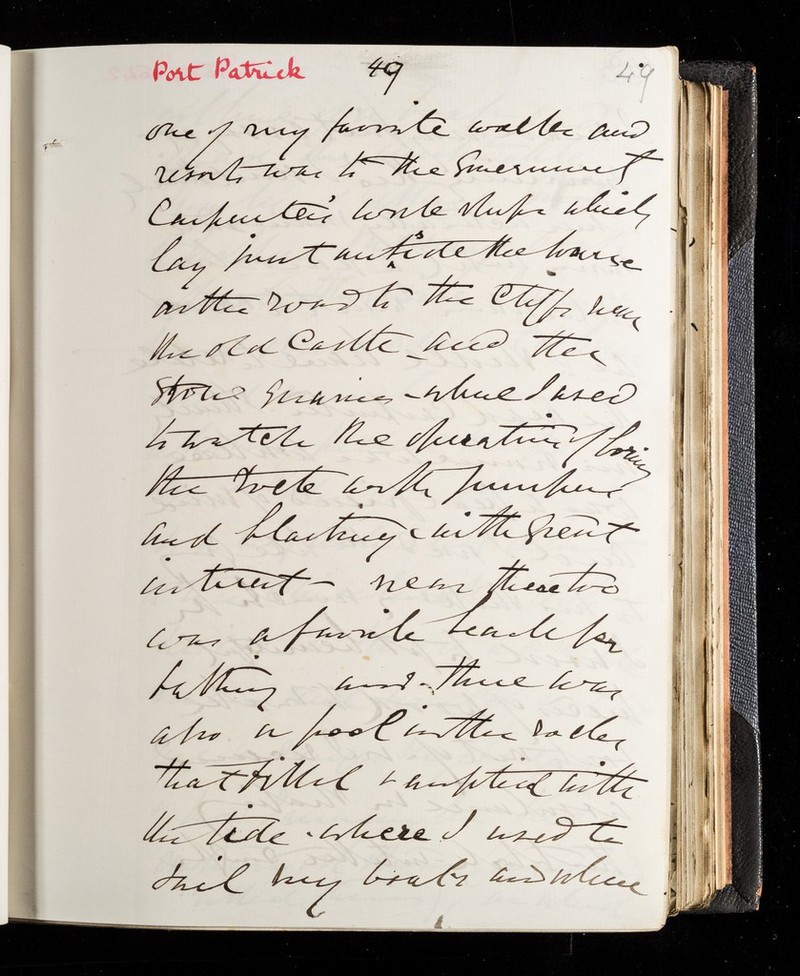 Port Patrick 49 49
one of my favorite walks and
resorts was to the Government
Carpenter's work shops which
lay just outside the house
on the road to the Cliffs near
the old Castle - and the
Stone Quarries - where I used
to watch the operation of boring
the rock with jumpers
and blasting with great
interest - near these too
was a favorite beach for
bathing and there was
also a pool in the rocks
that filled & emptied with
the tide - where I used to
sail my boats and where